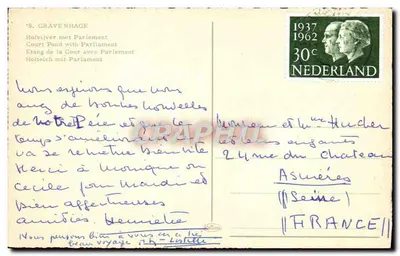 'S. GRAVENHAGE
Hofvijver met Parlement
Court Pond with Parliament
Etang de la Cour avec Parlement
Hofteich mit Parlament
1937
1962
30c
NEDERLAND
Nous espérons que vous
avez de bonnes nouvelles
de notre Père et que le
temps s'améliore
va se remettre bien vite
Merci à Monique ou
Cécile pour Mardi et
bien affectueuses
amitiés. Henriette
Nous pensons bien à vous
beau voyage
Monsieur et Mme Hucher
et leurs enfants
24 rue du Chateau
Asnières
(Seine)
FRANCE